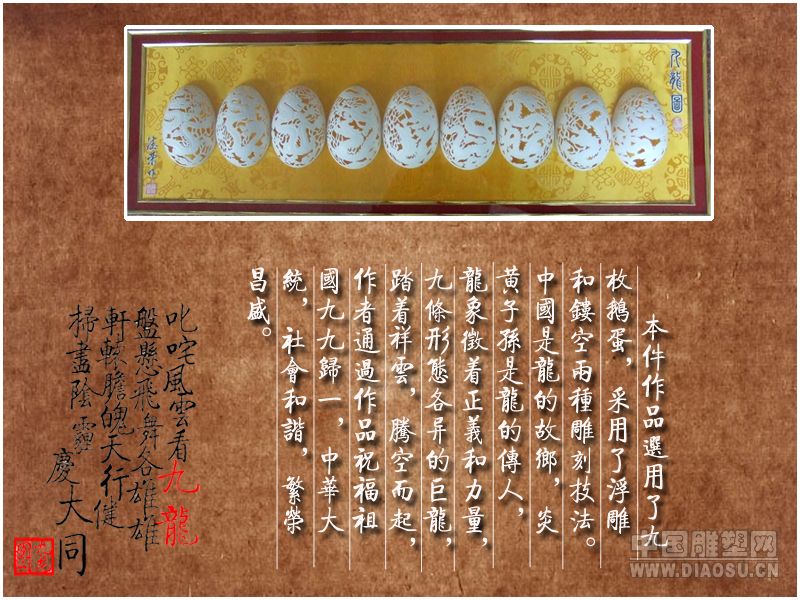 九龍圖
本件作品選用了九
枚鵝蛋，采用了浮雕
和鏤空兩種雕刻技法。
中國是龍的故鄉，炎
黃子孫是龍的傳人，
龍象徵着正義和力量，
九條形態各异的巨龍，
踏着祥雲，騰空而起，
作者通過作品祝福祖
國九九歸一，中華大
統，社會和諧，繁榮
昌盛。
叱咤風雲看九龍
盤懸飛舞各雄雄
軒轅膽魄天行健
掃盡陰霾慶大同
中国雕塑网
WWW.DIAOSU.CN